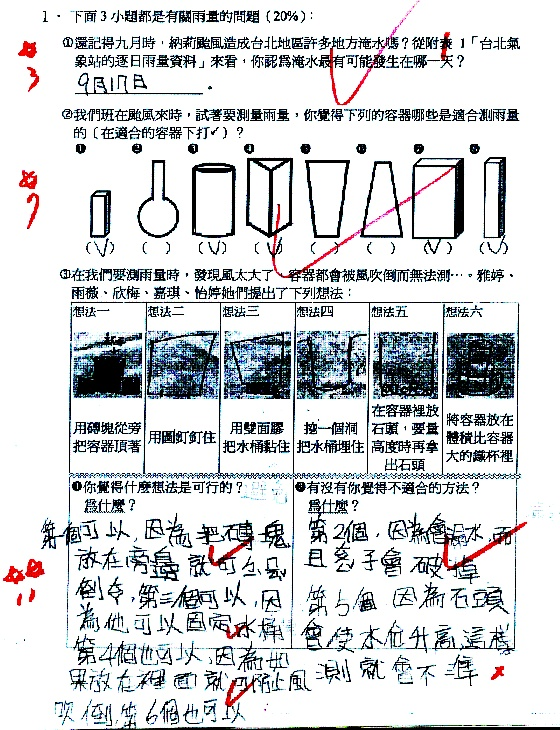 1． 下面3小題都是有關雨量的問題（20%）：
①還記得九月時，納莉颱風造成台北地區許多地方淹水嗎？從附表1「台北氣
象站的逐日雨量資料」來看，你認為淹水最有可能發生在哪一天？
9月17日
3
②我們班在颱風來時，試著要測量雨量，你覺得下列的容器哪些是適合測雨量
的〔在適合的容器下打✓〕？
❶ ❷ ❸ ❹ ❺ ❻ ❼ ❽
7
(✓) ( ) (✓) (✓) ( ) ( ) (✓) (✓)
③在我們要測雨量時，發現風太大了，容器都會被風吹倒而無法測…。雅婷、
雨薇、欣梅、嘉琪、怡婷她們提出了下列想法：
想法一 想法二 想法三 想法四 想法五 想法六
用磚塊從旁把容器頂著
用圖釘釘住
用雙面膠把水桶黏住
挖一個洞把水桶埋住
在容器裡放石頭，要量高度時再拿出石頭
將容器放在體積比容器大的鐵杯裡
❶你覺得什麼想法是可行的？
為什麼？
第1個可以，因為把石專塊
放在旁邊就可以
倒令，第三個可以，因
為他可以固定水桶
第4個也可以，因為如
果放在裡面就可阻止風
吹倒，第6個也可以
11
❷有沒有你覺得不適合的方法？
為什麼？
第2個，因為會漏水，而
且盒子會破掉
第5個 因為石頭
會使水位升高，這樣
測就會不準